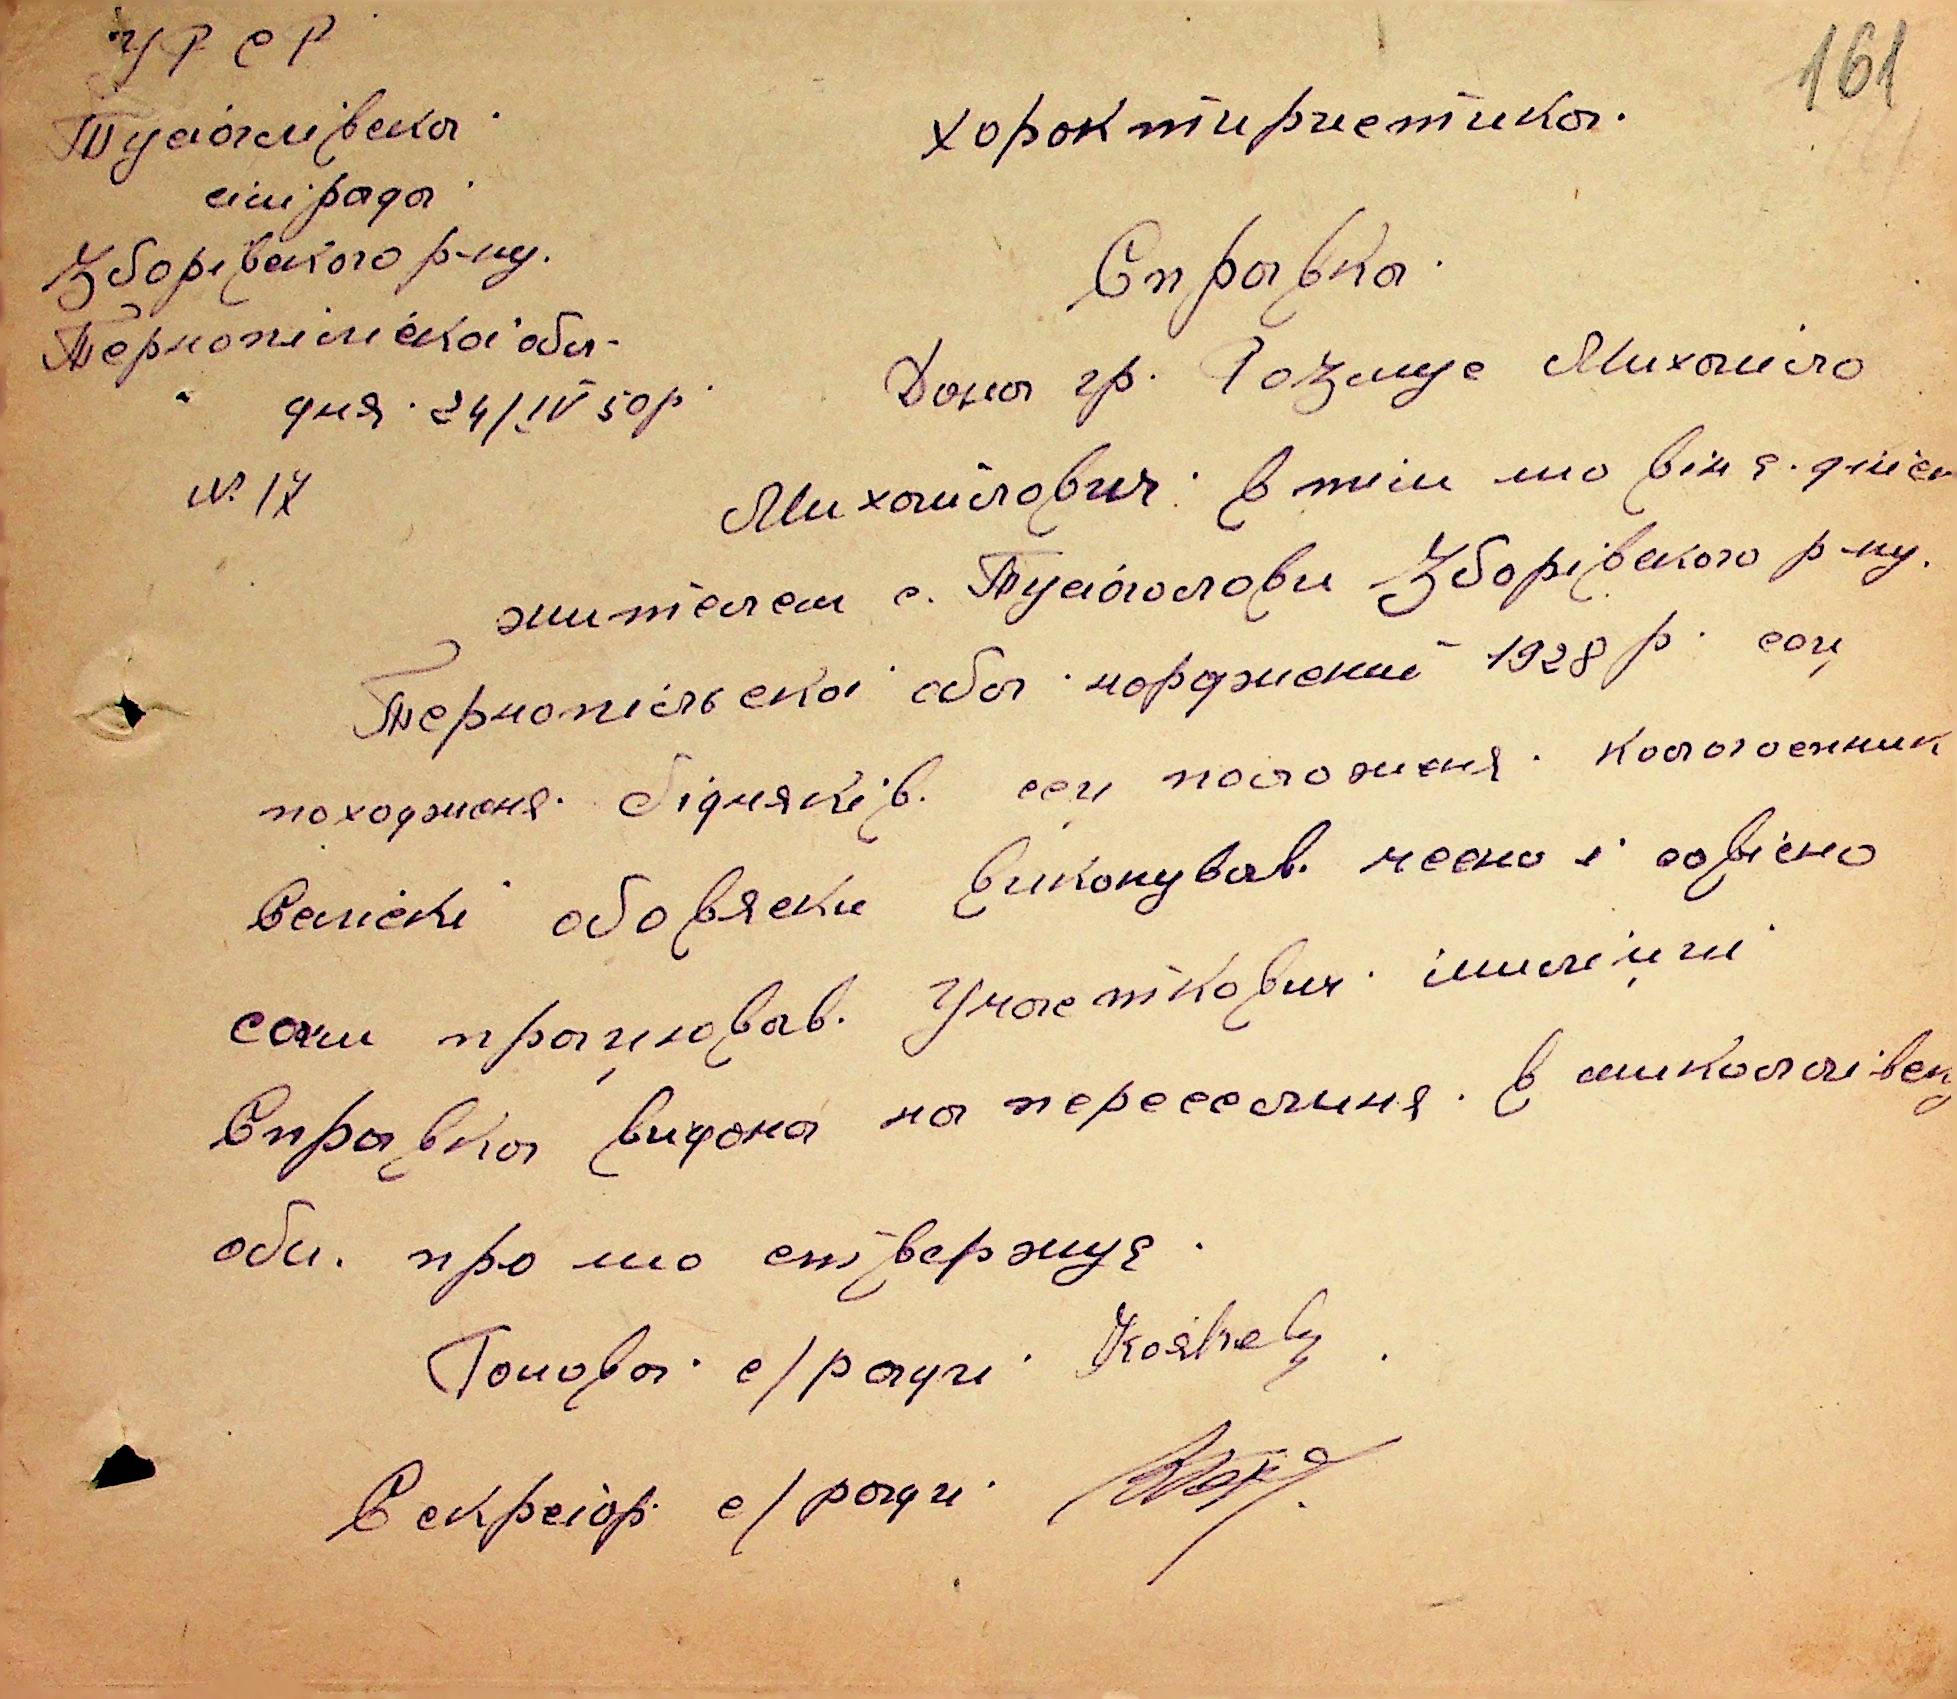 УРСР
161
Тустоглівска
сілрада
Зборівского р-ну.
Тернопіліскої обл-
дня 24/IV 50р.
№ 17
Хорактиристика.
Справка.
Дона гр. Михайло
Михайлович. в тім шо він є. дійсн
жителем с. Тустоголови Зборівского р-ну.
Тернопільскої обл. нарджений 1928 р. соц
походженя. бідняків. соц положеня. колгоспник
Селіскі обовяски виконував. чесно і совісно
сам працював. Участкович. імиліциі
Справка видона на переселиня. в миколаівск
обл. про шо ствержує.
Голова с/ради.
Секретор. с/ради.